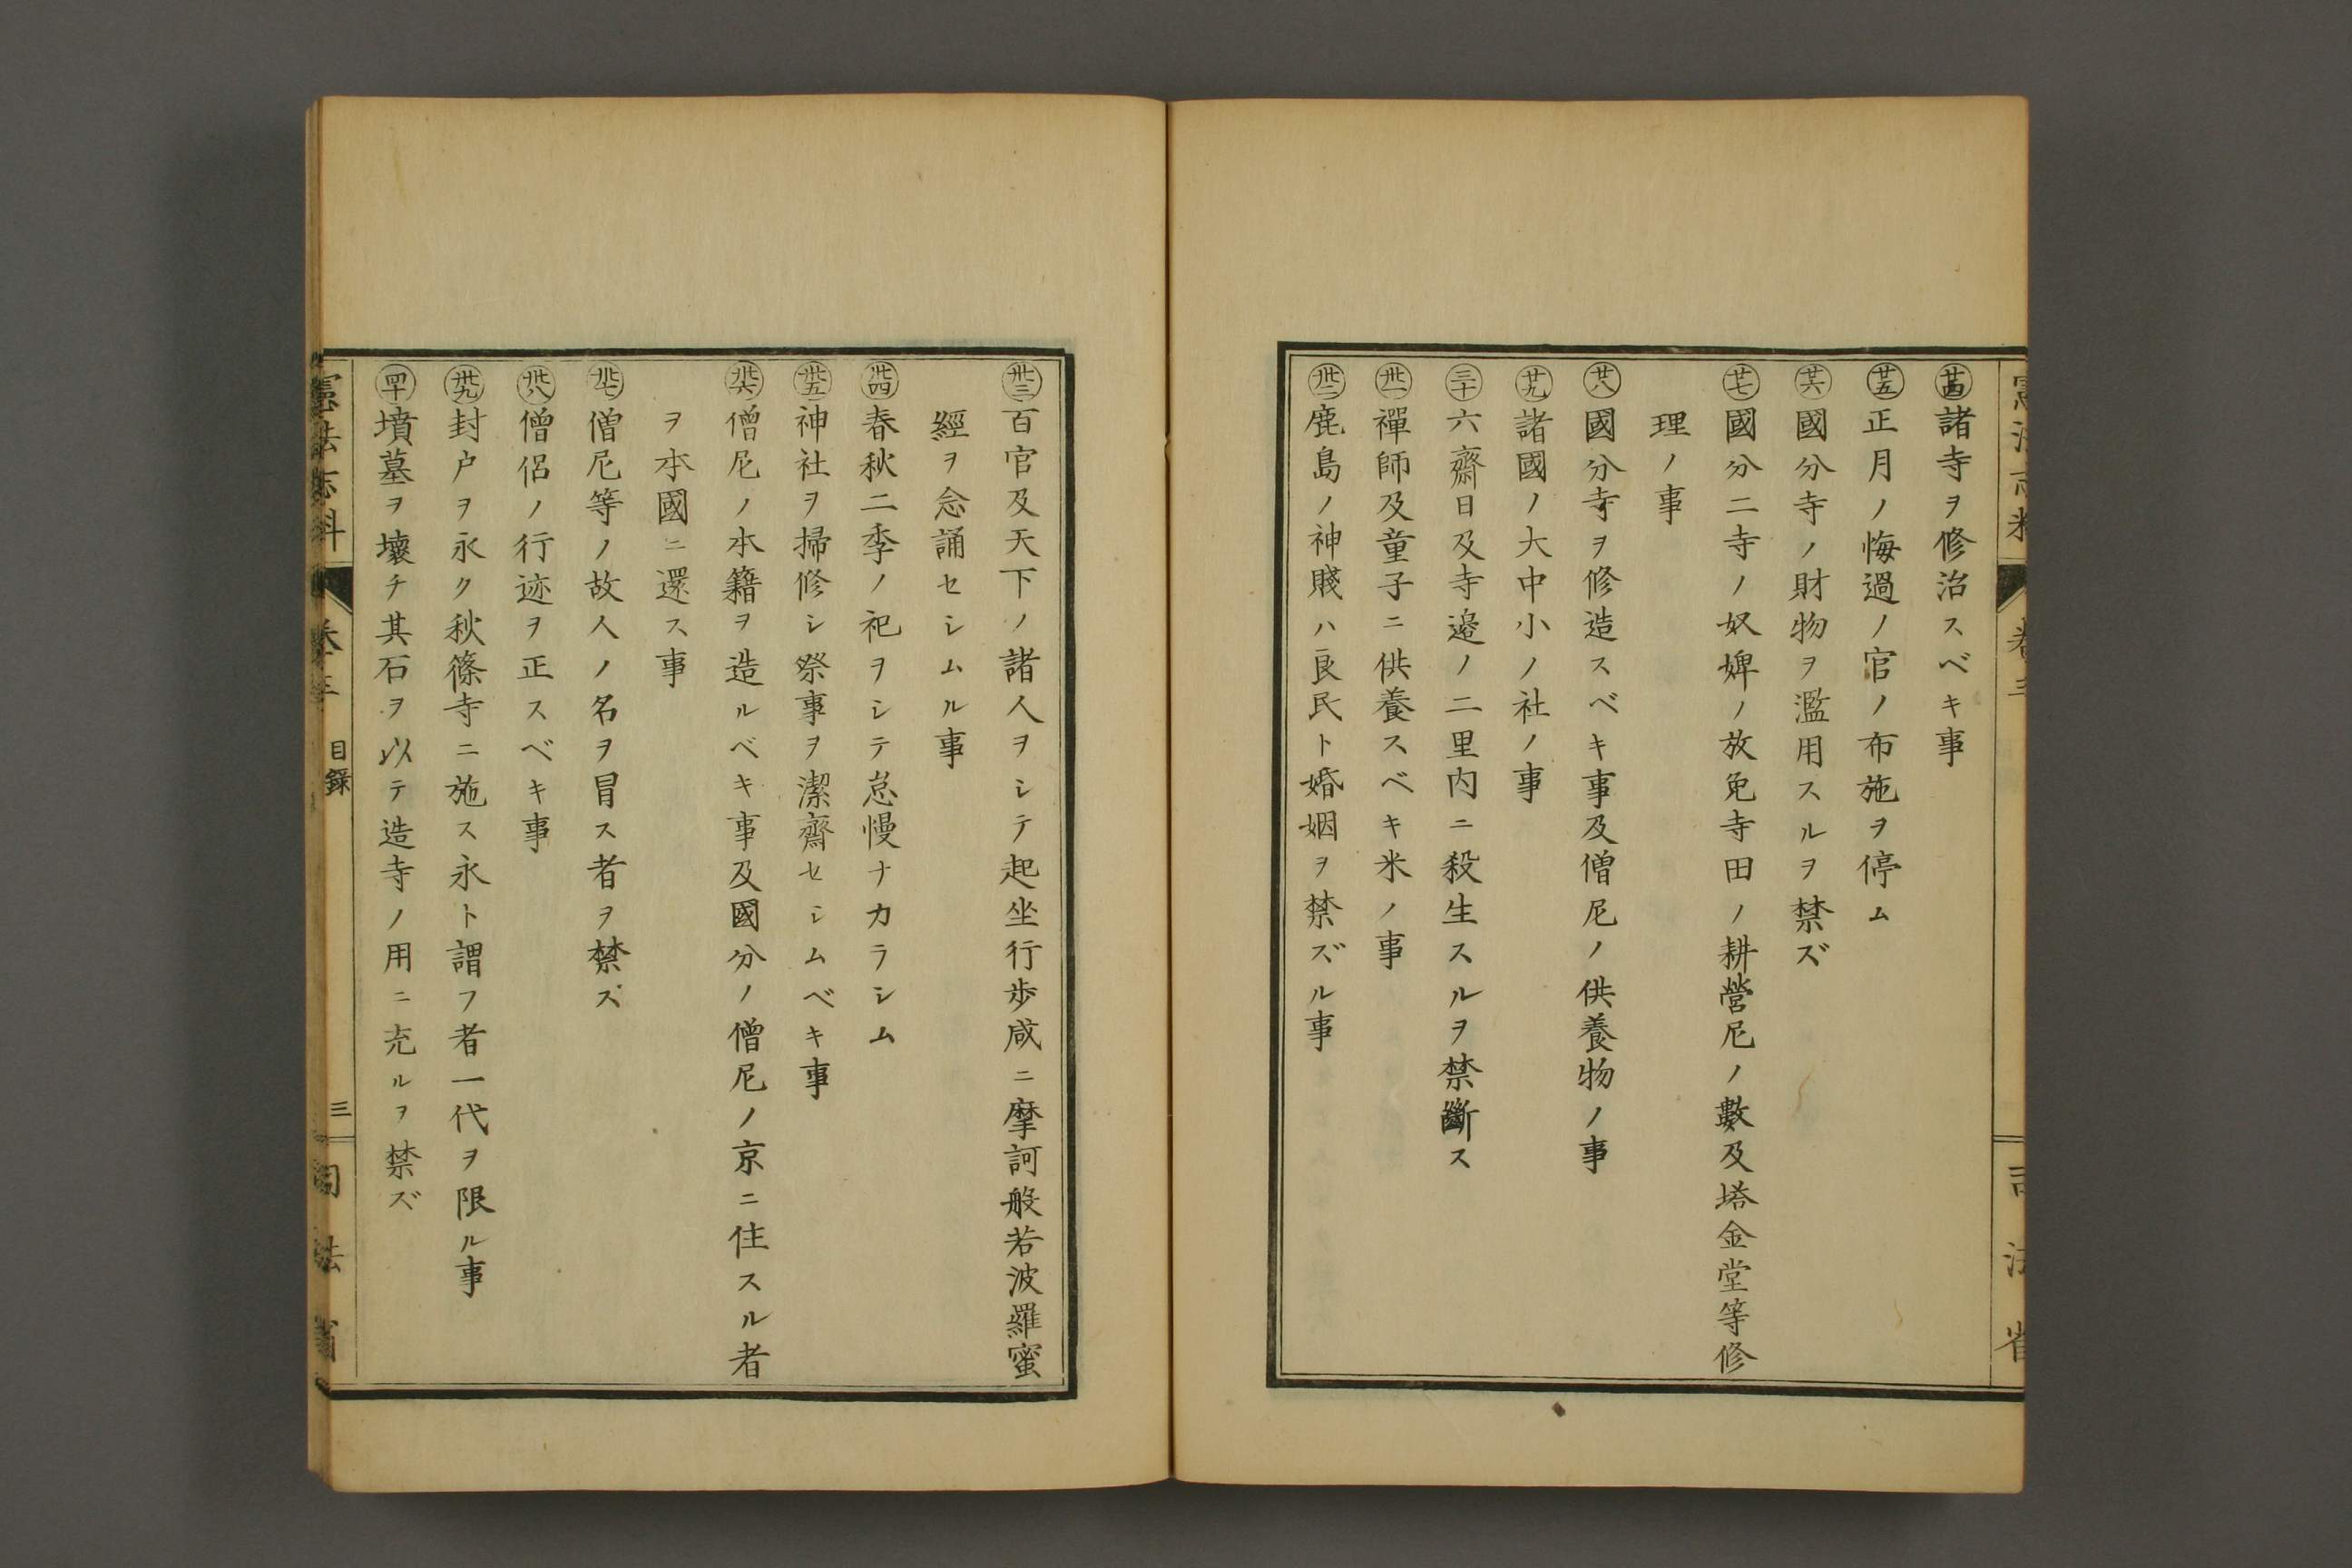 廿四諸寺ヲ修治スベキ事
廿五正月ノ悔過ノ官ノ布施ヲ停ム
廿六國分寺ノ財物ヲ濫用スルヲ禁ズ
廿七國分二寺ノ奴婢ノ放免寺田ノ耕營尼ノ數及塔金堂等修
理ノ事
廿八國分寺ヲ修造スベキ事及僧尼ノ供養物ノ事
廿九諸國ノ大中小ノ社ノ事
三十六齋日及寺邉ノ二里内ニ殺生スルヲ禁斷ス
卅一禪師及童子ニ供養スベキ米ノ事
卅二鹿島ノ神賤ハ良民ト婚姻ヲ禁ズル事
卅三百官及天下ノ諸人ヲシテ起坐行歩咸ニ摩訶般若波羅蜜
經ヲ念誦セシムル事
卅四春秋二季ノ祀ヲシテ怠慢ナカラシム
卅五神社ヲ掃修シ祭事ヲ潔齋セシムベキ事
卅六僧尼ノ本籍ヲ造ルベキ事及國分ノ僧尼ノ京ニ住スル者
ヲ本國ニ還ス事
卅七僧尼等ノ故人ノ名ヲ冒ス者ヲ禁ズ
卅八僧侶ノ行迹ヲ正スベキ事
卅九封戸ヲ永ク秋篠寺ニ施ス永ト謂フ者一代ヲ限ル事
四十墳墓ヲ壞チ其石ヲ以テ造寺ノ用ニ充ルヲ禁ズ
憲法志料
卷三
目録
三
司法省